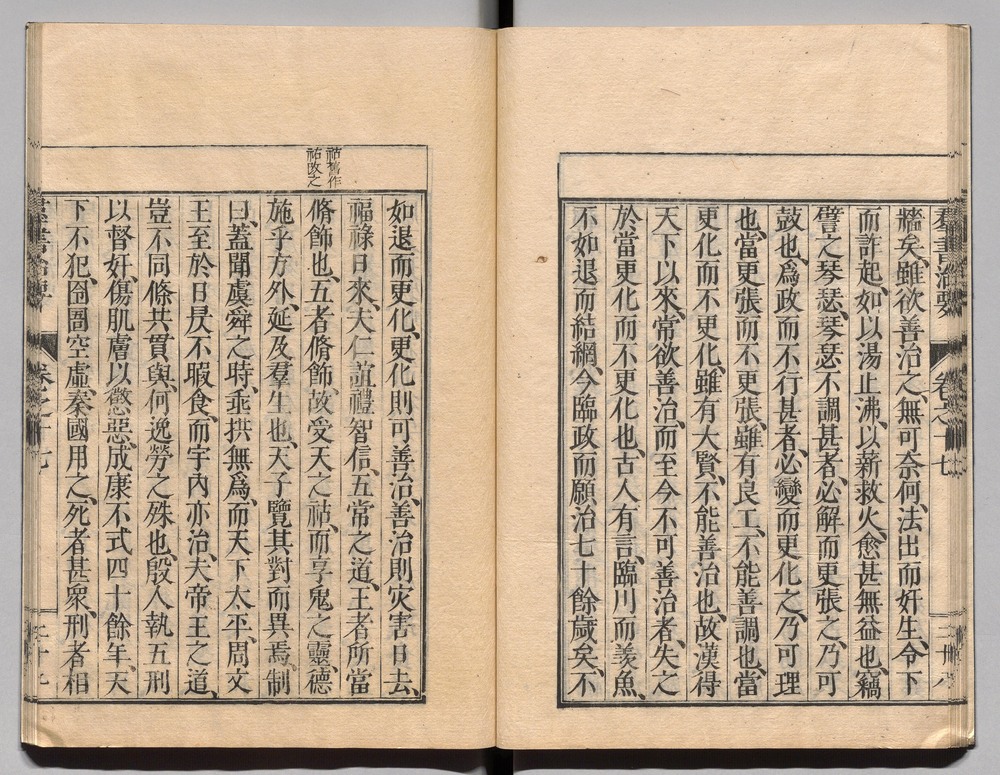 羣書治要 卷之十七 二十八
牆矣、雖欲善治之、無可奈何、法出而奸生、令下
而詐起、如以湯止沸、以薪救火、愈甚無益也、竊
譬之琴瑟、琴瑟不調甚者、必解而更張之、乃可
鼓也、爲政而不行甚者、必變而更化之、乃可理
也、當更張而不更張、雖有良工、不能善調也、當
更化而不更化、雖有大賢、不能善治也、故漢得
天下以來、常欲善治、而至今不可善治者、失之
於當更化而不更化也、古人有言、臨川而羨魚、
不如退而結網、今臨政而願治七十餘歲矣、不
祜舊作
祐改之
如退而更化、更化則可善治、善治則灾害日去、
福祿日來、夫仁誼禮智信、五常之道、王者所當
脩飾也、五者脩飾、故受天之祜、而享鬼之靈、德
施乎方外、延及羣生也、天子覽其對而異焉、制
曰、蓋聞虞舜之時、垂拱無爲、而天下太平、周文
王至於日昃不暇食、而宇內亦治、夫帝王之道、
豈不同條共貫與、何逸勞之殊也、殷人執五刑
以督奸、傷肌膚以懲惡、成康不式四十餘年、天
下不犯、囹圄空虛、秦國用之、死者甚衆、刑者相
羣書治要 卷之十七 二十九